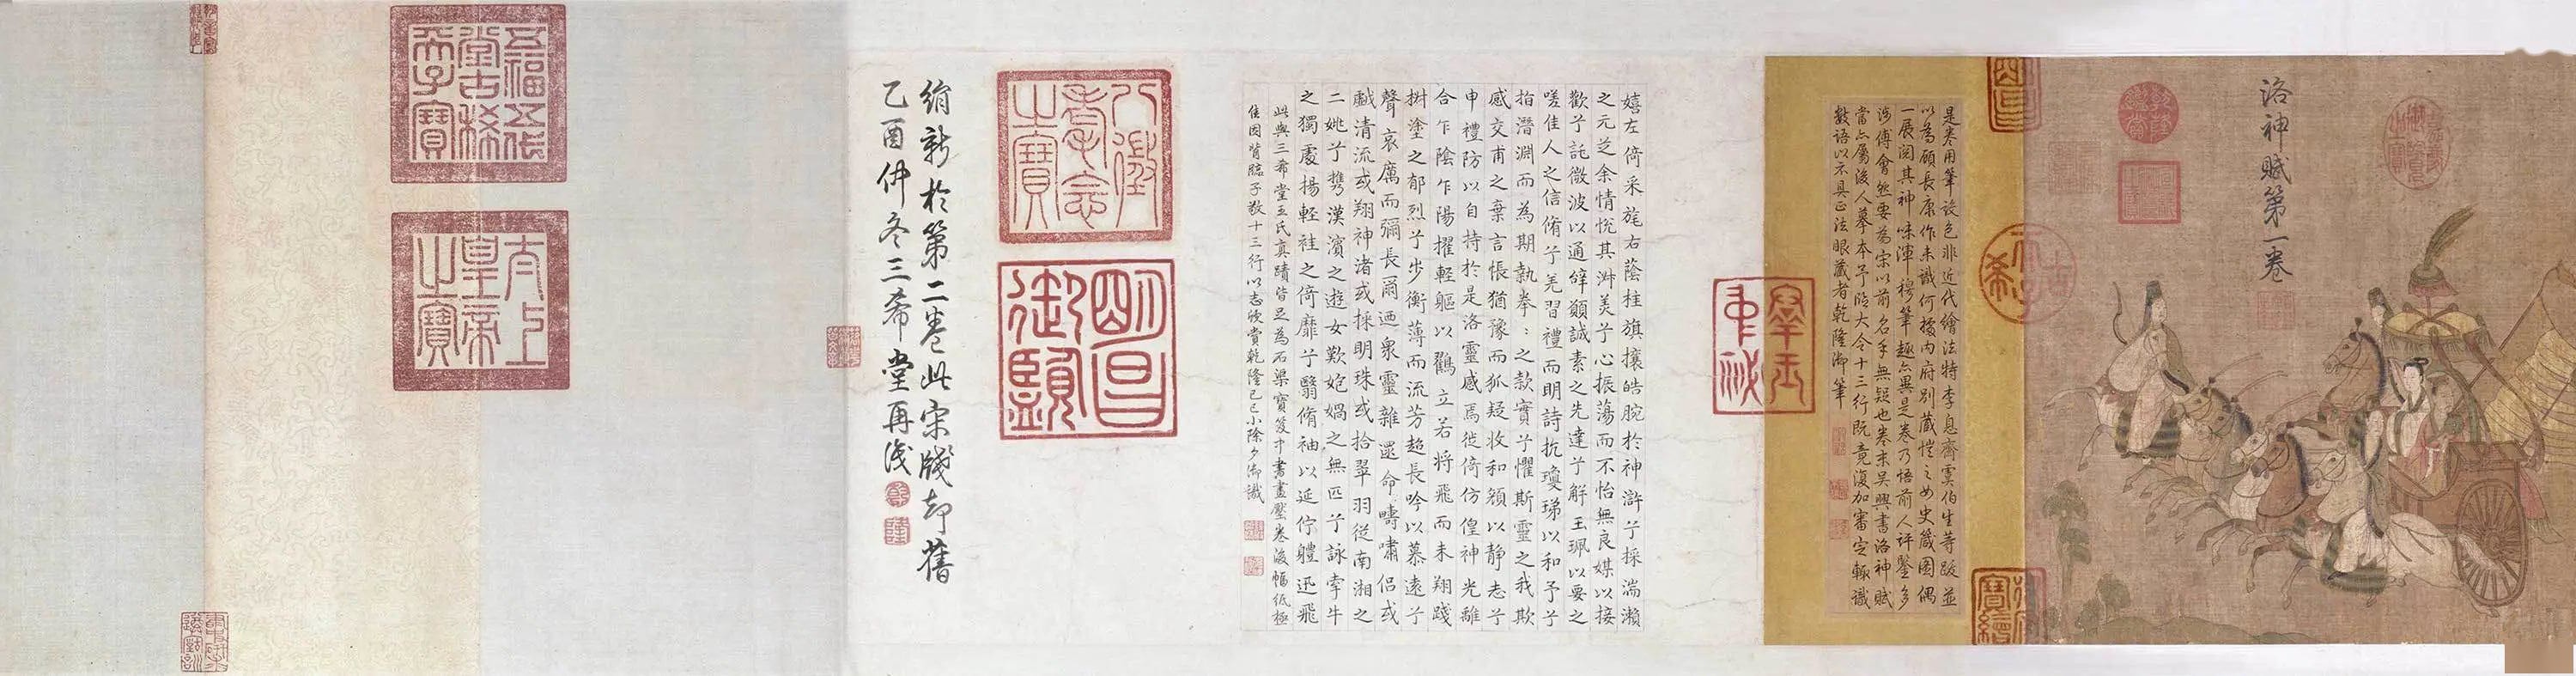 洛神賦第一卷
是卷用筆設色非近代繪法特李息齋虞伯生等跋並
以為顧長康作未識何據內府別藏愷之女史箴圖偶
一展閱其神味渾穆筆趣亦異是卷乃悟前人評鑒多
涉傅會然要為宋以前名手無疑也卷末吳興書洛神賦
當亦屬後人摹本予臨大令十三行既竟復加審定輒識
數語以示具正法眼藏者乾隆御筆
群玉中秘
嬉左倚采旄右蔭桂旗攘皓腕於神滸兮採湍瀨
之元芝余情悅其淑美兮心振蕩而不怡無良媒以接
歡兮託微波以通辭願誠素之先達兮解玉珮以要之
嗟佳人之信脩兮羌習禮而明詩抗瓊珶以和予兮
指潛淵而為期執拳:之款實兮懼斯靈之我欺
感交甫之棄言悵猶豫而狐疑收和顏以靜志兮
申禮防以自持於是洛靈感焉徙倚仿偟神光離
合乍陰乍陽擢輕軀以鸖立若將飛而未翔踐
椒塗之郁烈兮步蘅薄而流芳超長吟以慕遠兮
聲哀厲而彌長爾迺衆靈雜遝命疇嘯侶或
戲清流或翔神渚或採明珠或拾翠羽從南湘之
二姚兮攜漢濱之遊女歎匏媧之無匹兮詠牽牛
之獨處揚輕袿之倚靡兮翳脩袖以延佇軆迅飛
此與三希堂王氏真蹟皆足為石渠寶笈中書畫壓卷後幅紙極
佳因背臨子敬十三行以志欣賞乾隆己巳小除夕御識
八徵耄念之寶
明昌御覽
絹新於第二卷此宋牋却舊
乙酉仲冬三希堂再識
乾
隆
五福五代堂古稀天子寶
太上皇帝之寶